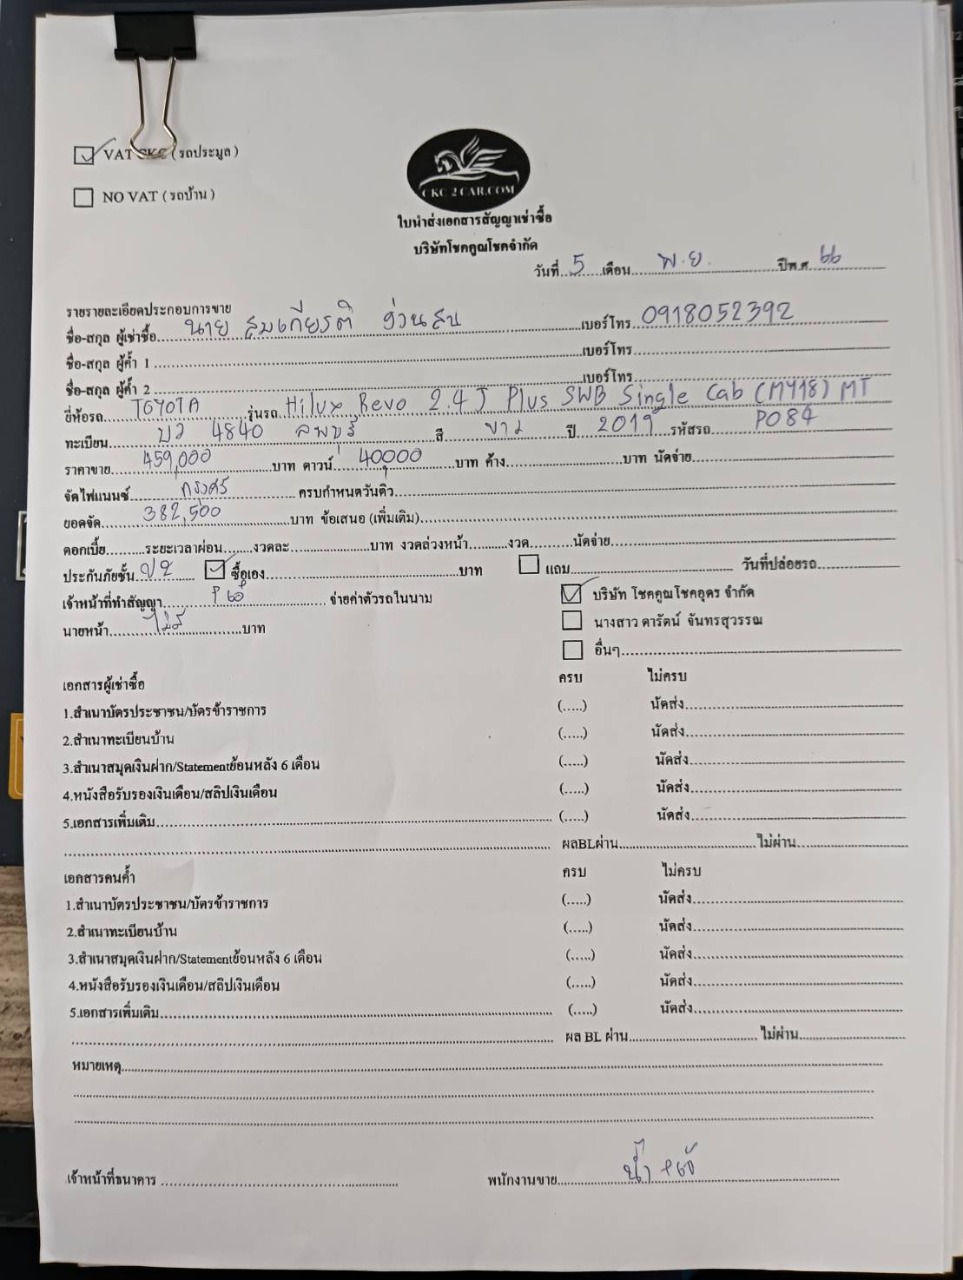 ☑ VAT CKC ( รถประมูล )
☐ NO VAT ( รถบ้าน )
CKC 2 CAR.COM
ใบนำส่งเอกสารสัญญาเช่าซื้อ
บริษัทโชคคูณโชคจำกัด
วันที่ 5 เดือน พ.ย. ปีพ.ศ. 66
รายรายละเอียดประกอบการขาย
ชื่อ-สกุล ผู้เช่าซื้อ นาย สมเกียรติ เบอร์โทร 0918052392
ชื่อ-สกุล ผู้ค้ำ 1 เบอร์โทร
ชื่อ-สกุล ผู้ค้ำ 2 เบอร์โทร
ยี่ห้อรถ TOYOTA รุ่นรถ Hilux Revo 2.4 J Plus SWB Single Cab (MY18) MT
ทะเบียน 4840 ลพบุรี สี ขาว ปี 2019 รหัสรถ P084
ราคาขาย 459,000 บาท ดาวน์ 40,000 บาท ค้าง บาท นัดจ่าย
จัดไฟแนนซ์ กรุงศรี ครบกำหนดวันคิว
ยอดจัด 382,500 บาท ข้อเสนอ (เพิ่มเติม)
ดอกเบี้ย ระยะเวลาผ่อน งวดละ บาท งวดล่วงหน้า งวด นัดจ่าย
ประกันภัยชั้น ☑ ซื้อเอง บาท ☐ แถม วันที่ปล่อยรถ
เจ้าหน้าที่ทำสัญญา จ่ายค่าตัวรถในนาม ☑ บริษัท โชคคูณโชคอุดร จำกัด
นายหน้า ไม่มี บาท ☐ นางสาว ดารัตน์ จันทรสุวรรณ
☐ อื่นๆ
เอกสารผู้เช่าซื้อ ครบ ไม่ครบ
1.สำเนาบัตรประชาชน/บัตรข้าราชการ (.....) นัดส่ง
2.สำเนาทะเบียนบ้าน (.....) นัดส่ง
3.สำเนาสมุดเงินฝาก/Statementย้อนหลัง 6 เดือน (.....) นัดส่ง
4.หนังสือรับรองเงินเดือน/สลิปเงินเดือน (.....) นัดส่ง
5.เอกสารเพิ่มเติม (.....) นัดส่ง
ผลBLผ่าน ไม่ผ่าน
เอกสารคนค้ำ ครบ ไม่ครบ
1.สำเนาบัตรประชาชน/บัตรข้าราชการ (.....) นัดส่ง
2.สำเนาทะเบียนบ้าน (.....) นัดส่ง
3.สำเนาสมุดเงินฝาก/Statementย้อนหลัง 6 เดือน (.....) นัดส่ง
4.หนังสือรับรองเงินเดือน/สลิปเงินเดือน (.....) นัดส่ง
5.เอกสารเพิ่มเติม (.....) นัดส่ง
ผล BL ผ่าน ไม่ผ่าน
หมายเหตุ
เจ้าหน้าที่ธนาคาร พนักงานขาย